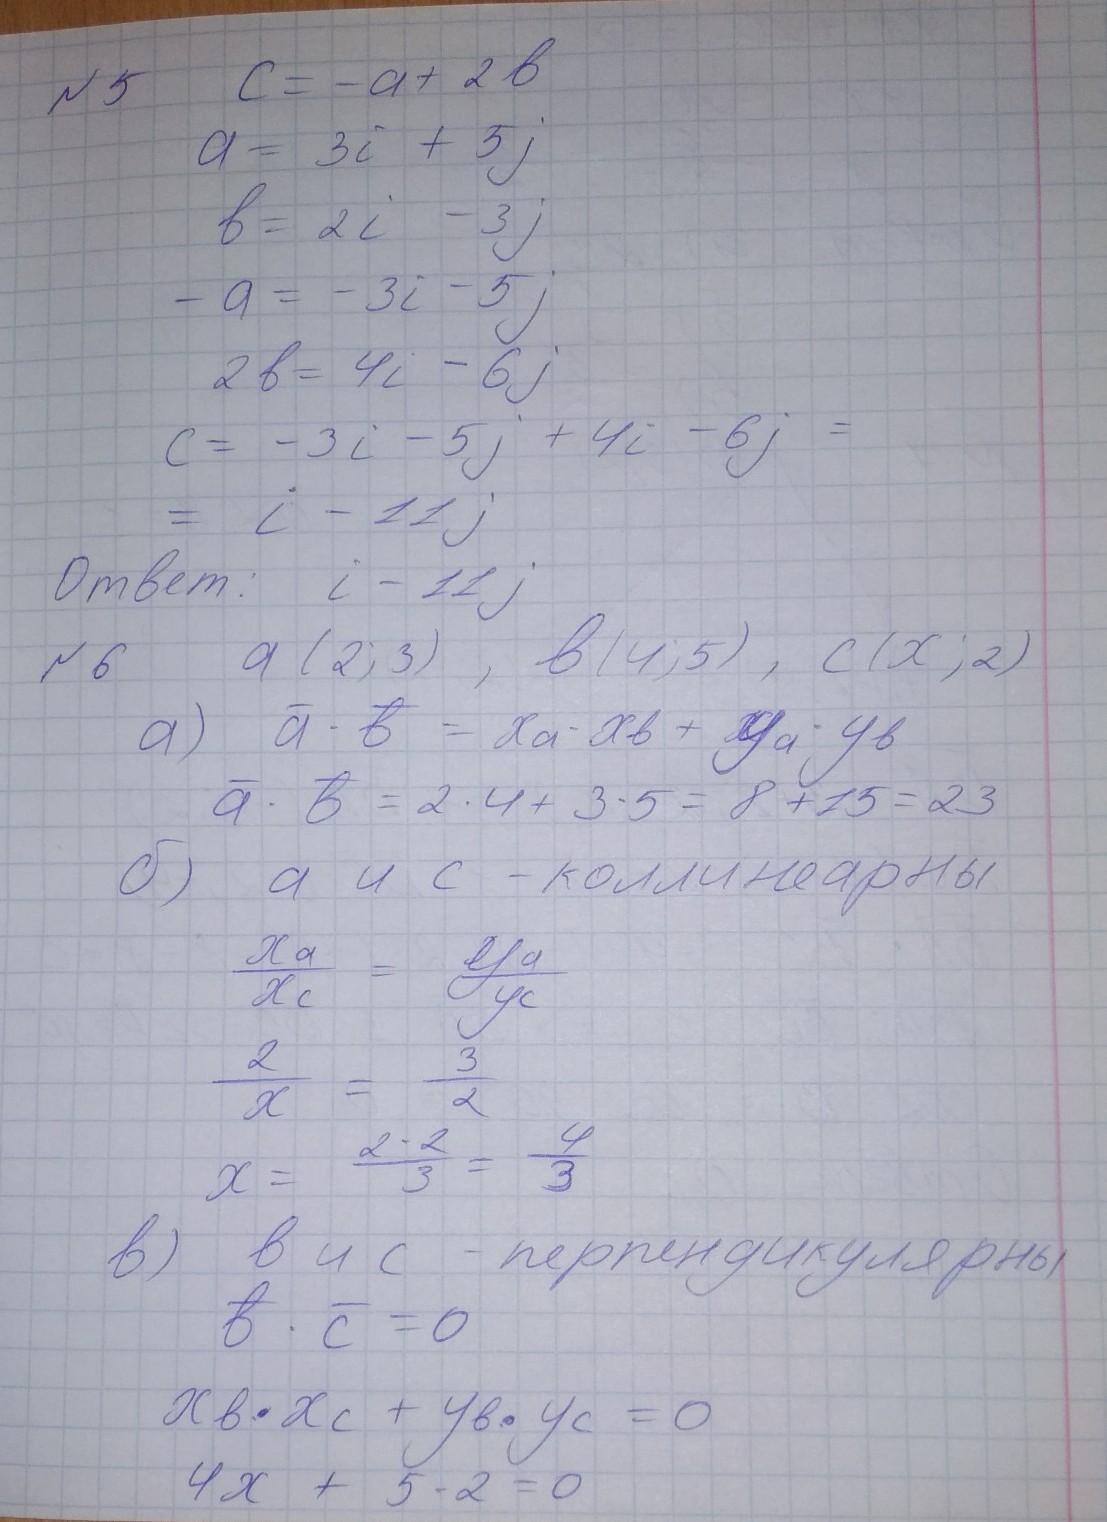 №5 c = -a + 2b
a = 3i + 5j
b = 2i - 3j
-a = -3i - 5j
2b = 4i - 6j
c = -3i - 5j + 4i - 6j =
= i - 11j
Ответ: i - 11j
№6 a (2; 3), b (4; 5), c (x; 2)
а) a̅ · b̅ = xa · xb + ya · yb
a̅ · b̅ = 2 · 4 + 3 · 5 = 8 + 15 = 23
б) a и c - коллинеарны
xa/xc = ya/yc
2/x = 3/2
x = 2·2/3 = 4/3
в) b и c - перпендикулярны
b̅ · c̅ = 0
xb · xc + yb · yc = 0
4x + 5 · 2 = 0